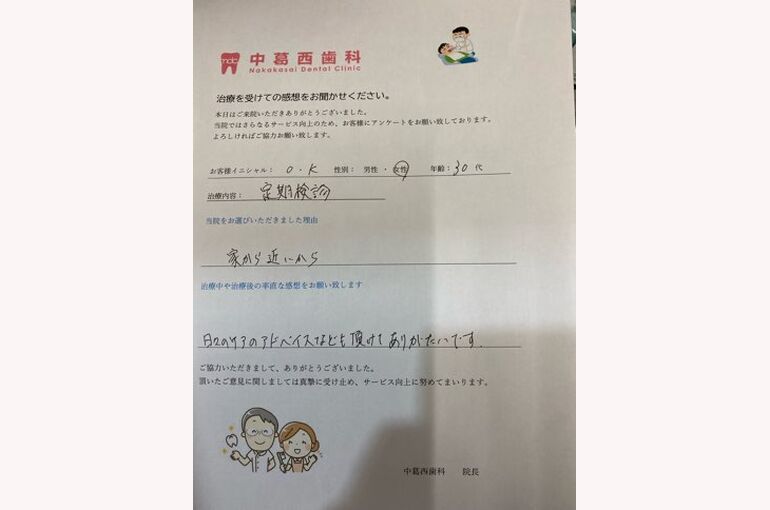 ndc
中葛西歯科
Nakakasai Dental Clinic
治療を受けての感想をお聞かせください。
本日はご来院いただきありがとうございました。
当院ではさらなるサービス向上のため、お客様にアンケートをお願い致しております。
よろしければご協力お願い致します。
お客様イニシャル： O・K 性別： 男性 ・ 女性 年齢：30 代
治療内容： 定期検診
当院をお選びいただきました理由
家から近いから
治療中や治療後の率直な感想をお願い致します
日々のケアのアドバイスなども頂けてありがたいです。
ご協力いただきまして、ありがとうございました。
頂いたご意見に関しましては真摯に受け止め、サービス向上に努めてまいります。
中葛西歯科 院長